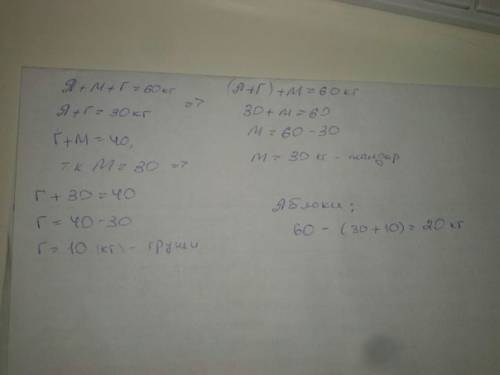 Я+М+Г=60кг
Я+Г=30кг =>
Г+М=40,
т.к М=30 =>
Г+30=40
Г=40-30
Г=10 (кг) - груши
(Я+Г)+М=60кг
30+М=60
М=60-30
М=30 кг - мандар
Яблоки:
60-(30+10)=20кг